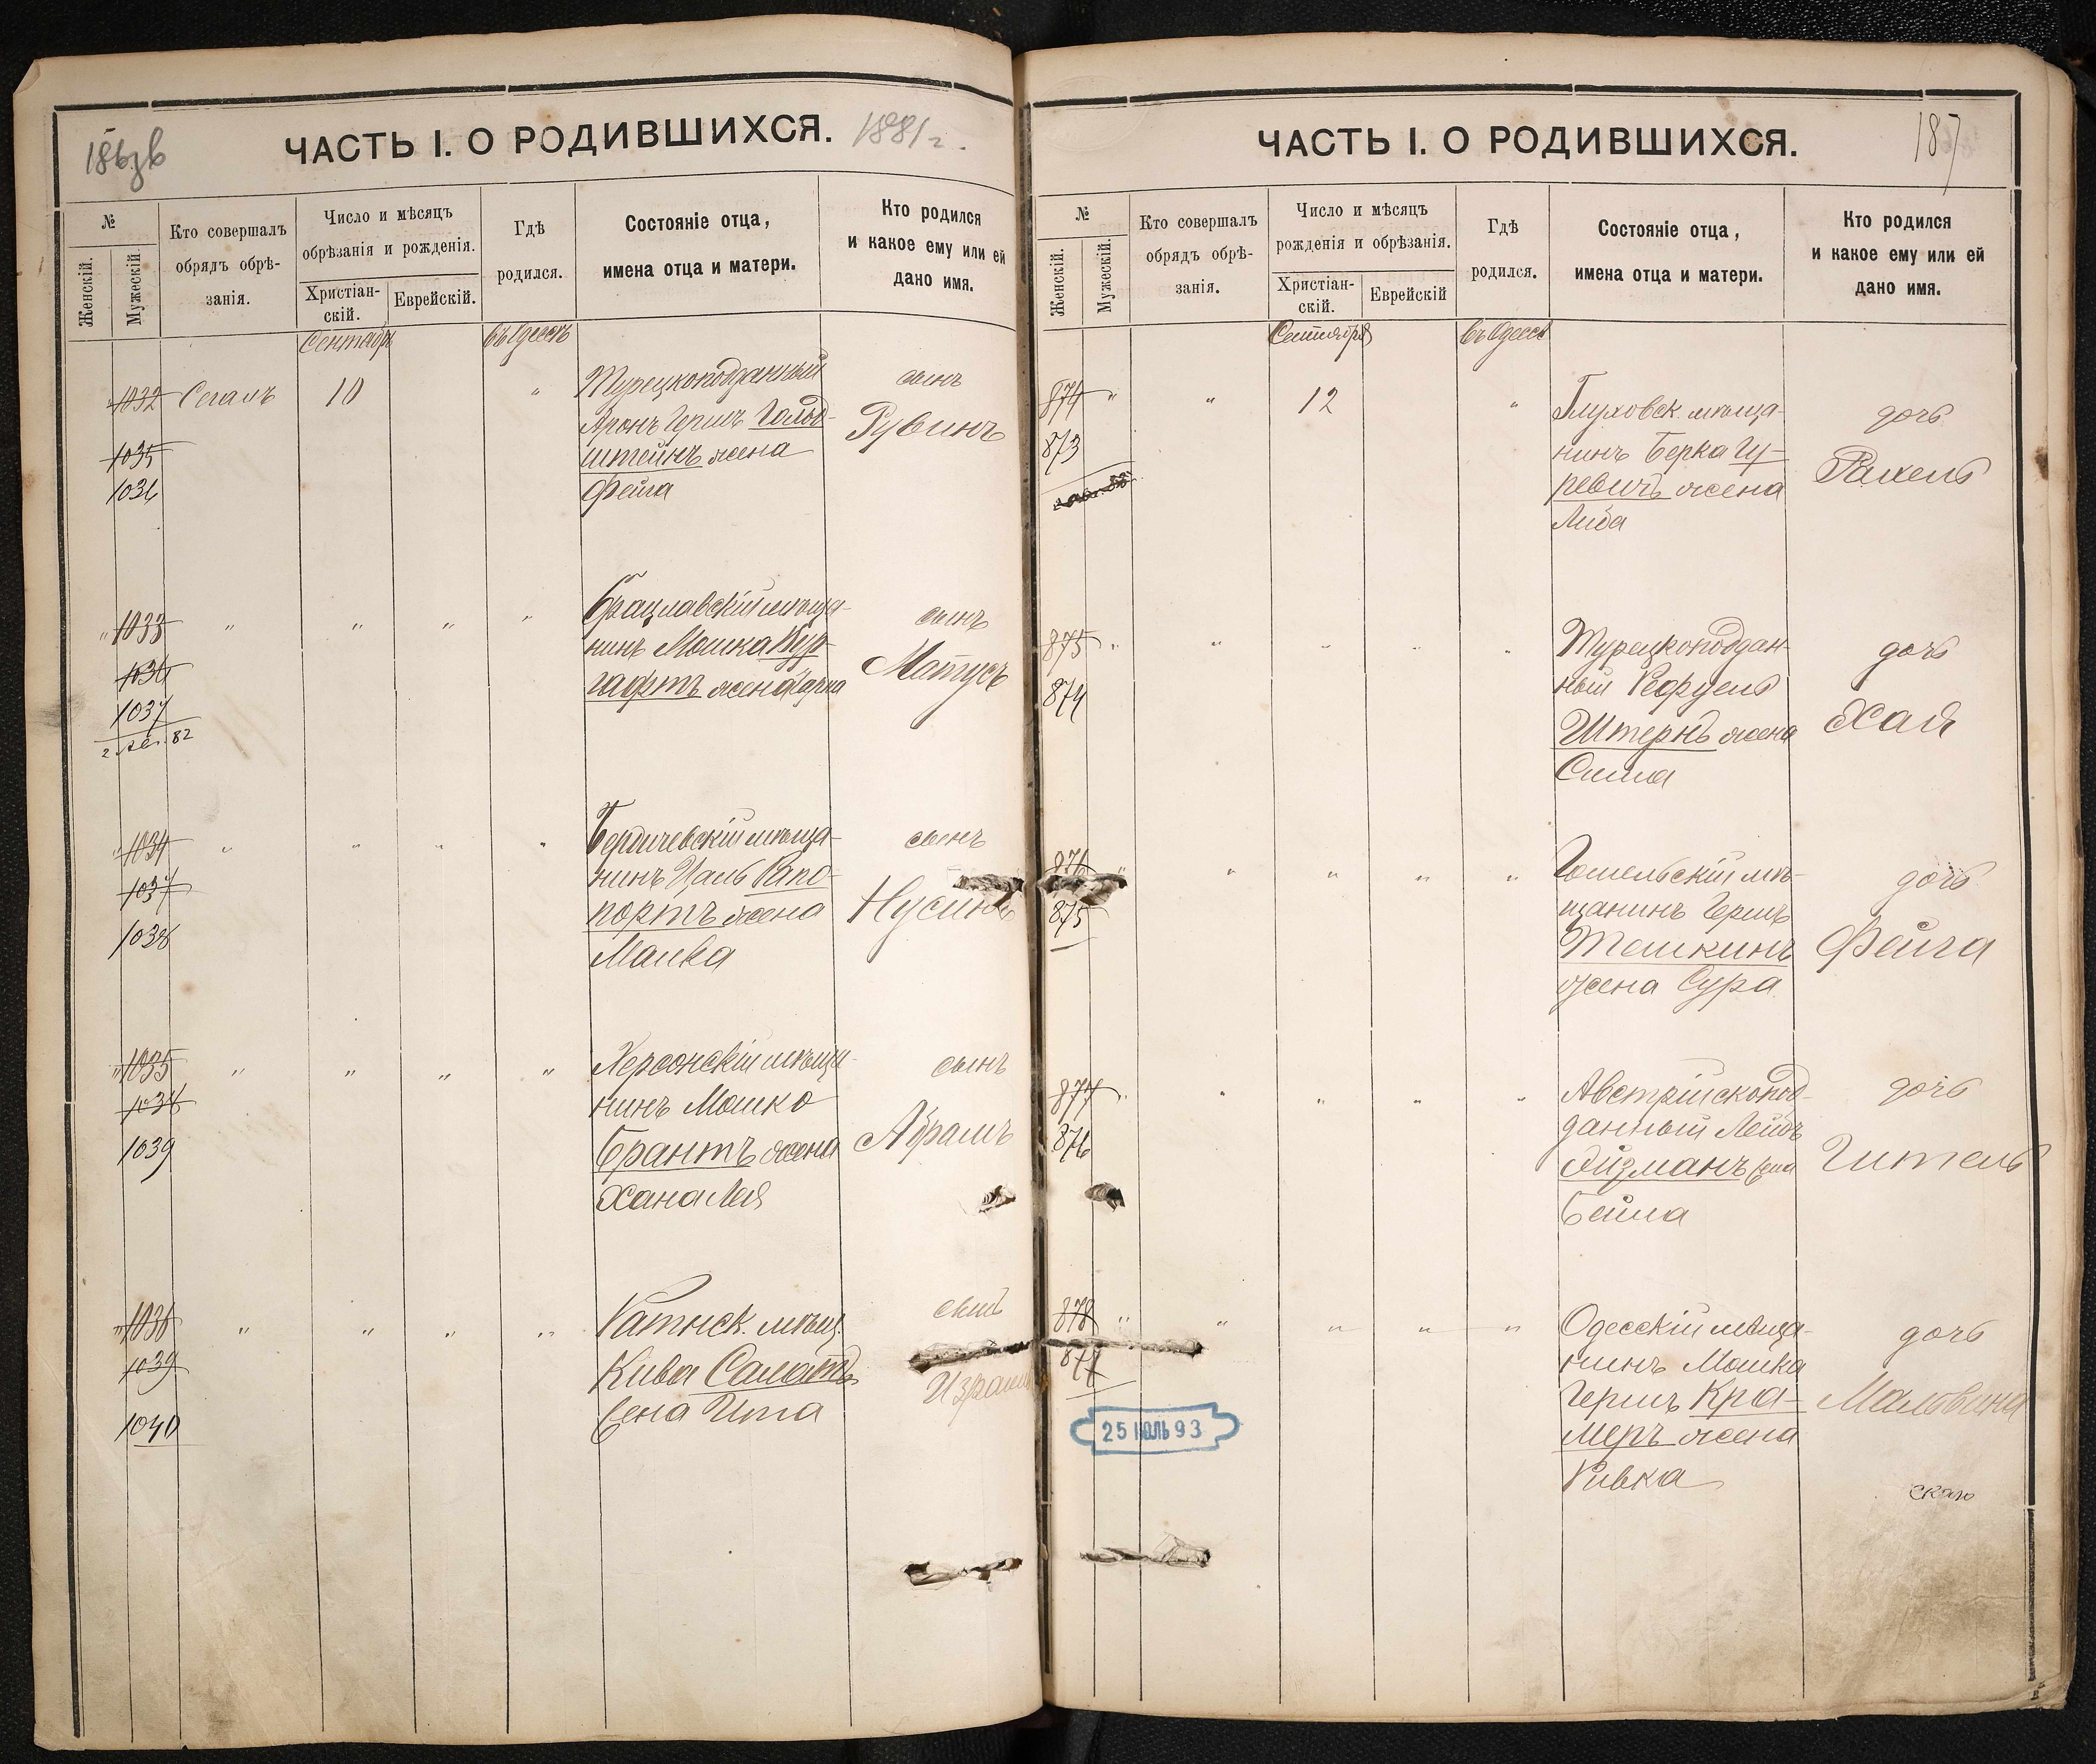 186 зв
ЧАСТЬ I. О РОДИВШИХСЯ. 1881 г.
№
Женскій.
Мужескій.
Кто совершалъ
обрядъ обрѣ-
занія.
Число и мѣсяцъ
обрѣзанія и рожденія.
Христіан-
скій.
Еврейскій.
Гдѣ
родился.
Состояніе отца,
имена отца и матери.
Кто родился
и какое ему или ей
дано имя.
Сентябр
въ Одессѣ
1032 Сегалъ 10 "
1035
1036
Турецкоподданный
Аронъ Гершъ Гольд-
штейнъ жена
Фейга
сынъ
Рувинъ
" 1033 " " " "
1036
1037
2 82
Брацлавскій мѣща-
нинъ Мошка Вур-
гафтъ жена
сынъ
Мотусъ
" 1034 " " " "
1037
1038
Бердичевскій мѣща-
нинъ Цаль Рапо-
портъ жена
Малка
сынъ
Нусинъ
" 1035 " " " "
1038
1039
Херсонскій мѣща-
нинъ Мошко
Брантъ жена
Хана Лея
сынъ
Абрамъ
" 1036 " " " "
1039
1040
Ратнск. мѣщ.
Кива
жена Ита
сынъ
Израиль
187
ЧАСТЬ I. О РОДИВШИХСЯ.
№
Женскій.
Мужескій.
Кто совершалъ
обрядъ обрѣ-
занія.
Число и мѣсяцъ
рожденія и обрѣзанія.
Христіан-
скій.
Еврейскій
Гдѣ
родился.
Состояніе отца,
имена отца и матери.
Кто родился
и какое ему или ей
дано имя.
Сентября
въ Одессѣ
874 " " 12 "
873
Глуховск мѣща-
нинъ Берка Гу-
ревичъ жена
Либа
дочь
Рахель
875 " " " " "
874
Турецкоподдан-
ный
Штернъ жена
Сима
дочь
Хая
876 " " " " "
875
Гомельскій мѣ-
щанинъ Гершъ
Темкинъ
жена Сура
дочь
Фейга
877 " " " " "
876
Австрійскопод-
данный Лейбъ
Айзманъ жена
Бейла
дочь
Гитель
878 " " " " "
877
25 ІЮЛЬ 93
Одесскій мѣща-
нинъ Мошка
Гершъ Кра-
меръ жена
Ривка
дочь
Мальвина